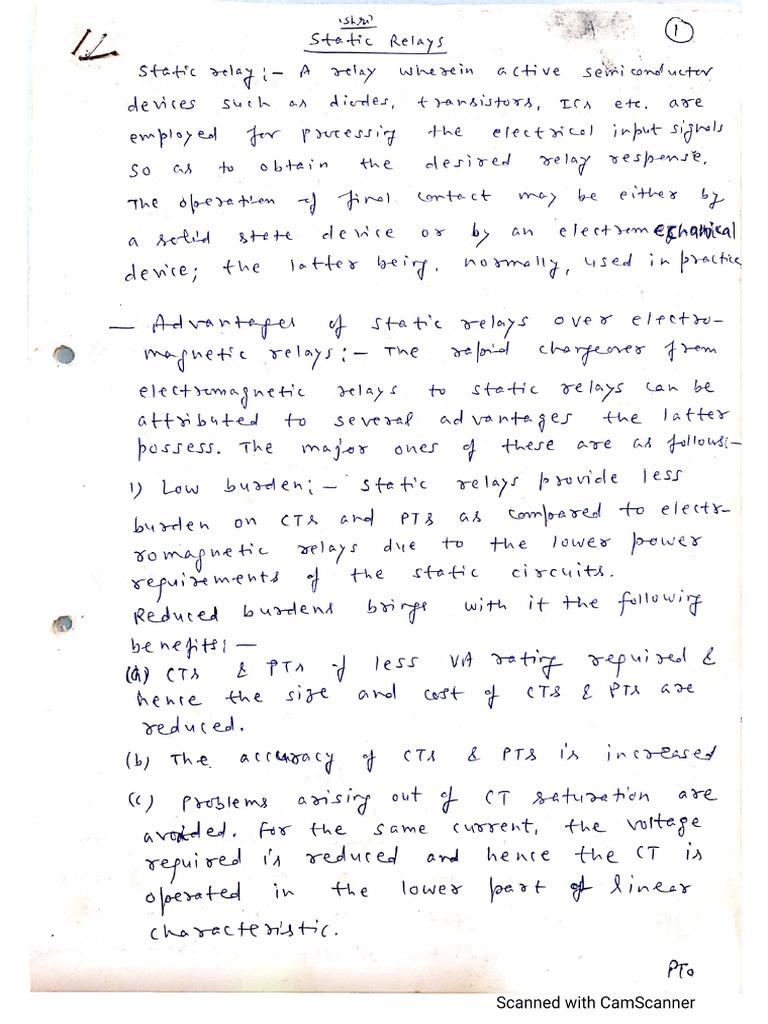 "Shri"
Static Relays
1
11
Static relay:- A relay wherein active semiconductor
devices such as diodes, transistors, ICs etc. are
employed for processing the electrical input signals
so as to obtain the desired relay response.
The operation of final contact may be either by
a solid state device or by an electromechanical
device; the latter being, normally, used in practice
— Advantages of static relays over electro-
magnetic relays:- The rapid changeover from
electromagnetic relays to static relays can be
attributed to several advantages the latter
possess. The major ones of these are as follows:-
1) Low burden:- Static relays provide less
burden on CTs and PTs as compared to elect-
romagnetic relays due to the lower power
requirements of the static circuits.
Reduced burdens brings with it the following
benefits:-
(a) CTs & PTs of less VA rating required &
hence the size and cost of CTs & PTs are
reduced.
(b) The accuracy of CTs & PTs is increased
(c) Problems arising out of CT saturation are
avoided. For the same current, the voltage
required is reduced and hence the CT is
operated in the lower part of linear
characteristic.
PTO
Scanned with CamScanner